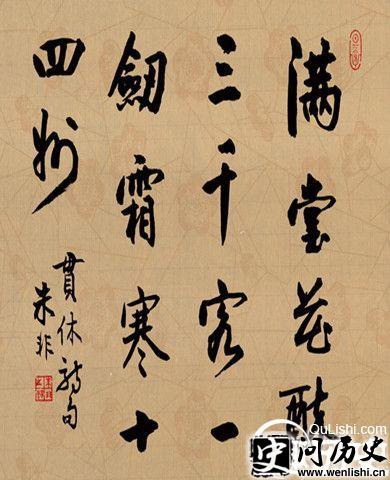 满堂花醉
三千客一
劍霜寒十
四州
貫休诗句
朱非
QuLishi.com
史 问历史
www.wenlishi.cn